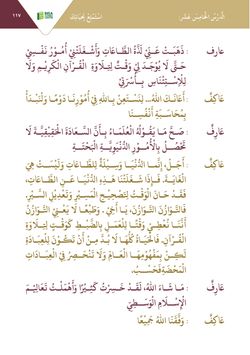 الدَّرْسُ الْخَامِسَ عَشَرَ
اسْتَمْتِعْ بِحَيَاتِكَ
١١٧
عارِف : ذَهَبَتْ عَنِّيْ لَذَّةُ الطَّاعَاتِ وَأَشْغَلَتْنِيْ أُمُوْرُ نَفْسِيْ
حَتَّى لَا يُوْجَدُ لِيْ وَقْتٌ لِتِلَاوَةِ الْقُرْآنِ الْكَرِيْمِ وَلَا
لِلْاِسْتِئْنَاسِ بِأُسْرَتِيْ
عَاكِفٌ : أَعَانَكَ اللهُ.. لِنَسْتَعِنْ بِاللهِ فِيْ أُمُوْرِنَا دَوْمًا وَلْنَبْدَأْ
بِمُحَاسَبَةِ أَنْفُسِنَا
عَارِفٌ : صَحَّ مَا يَقُوْلُهُ الْعُلَمَاءُ بِأَنَّ السَّعَادَةَ الْحَقِيْقِيَّةَ لَا
تَحْصُلُ بِالْأُمُوْرِ الدُّنْيَوِيَّةِ الْبَحْتَةِ
عَاكِفٌ : أَجَلْ، إِنَّمَا الدُّنْيَا وَسِيْلَةٌ لِلطَّاعَاتِ وَلَيْسَتْ هِيَ
الْغَايَةَ. فَإِذَا شَغَلَتْنَا هَذِهِ الدُّنْيَا عَنِ الطَّاعَاتِ،
فَقَدْ حَانَ الْوَقْتُ لِتَصْحِيْحِ الْمَسِيْرِ وَتَعْدِيْلِ السَّيْرِ.
فَالتَّوَازُنَ التَّوَازُنَ، يَا أَخِيْ. وَطَبْعًا لَا يَعْنِي التَّوَازُنُ
أَنَّنَا نُعْطِيْ وَقْتًا لِلْعَمَلِ بِالضَّبْطِ كَوَقْتٍ لِتِلَاوَةِ
الْقُرْآنِ. فَالْحَيَاةُ كُلُّهَا لَا بُدَّ مِنْ أَنْ تَكُوْنَ لِلْعِبَادَةِ
لَكِنْ بِمَفْهُوْمِهَا الْعَامِّ وَلَا تَنْحَصِرُ فِي الْعِبَادَاتِ
الْمَحْضَةِ فَحَسْبُ.
عَارِفٌ : مَا شَاءَ اللهُ، لَقَدْ خَسِرْتُ كَثِيْرًا وَأَهْمَلْتُ تَعَالِيْمَ
الْإِسْلَامِ الْوَسَطِيِّ
عَاكِفٌ : وَفَّقَنَا اللهُ جَمِيْعًا